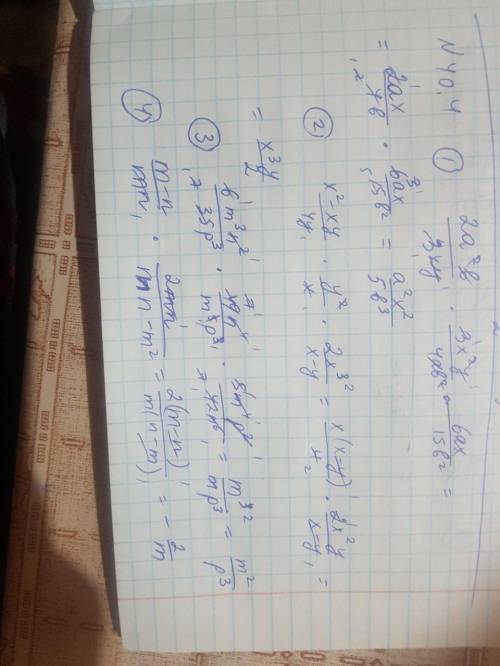 N 40.4
① 2a²b / 3xy · 3x²y / 4ab² · 6ax / 15b² =
= 2ax / 4b · 6ax / 15b² = a²x² / 5b³
② x²-xy / 4y · y² / x · 2x³ / x-y = x(x-y) / · 2x²y / x-y =
= x³y / 2
③ 6m³n² / 35p³ · 49n⁴ / m⁵p³ · 5m⁴p² / 42n⁶ = m² / mp³ = m² / p³
④ m-n / mn · 2mn / mn-m² = 2(m-n) / m(n-m) = - 2 / m